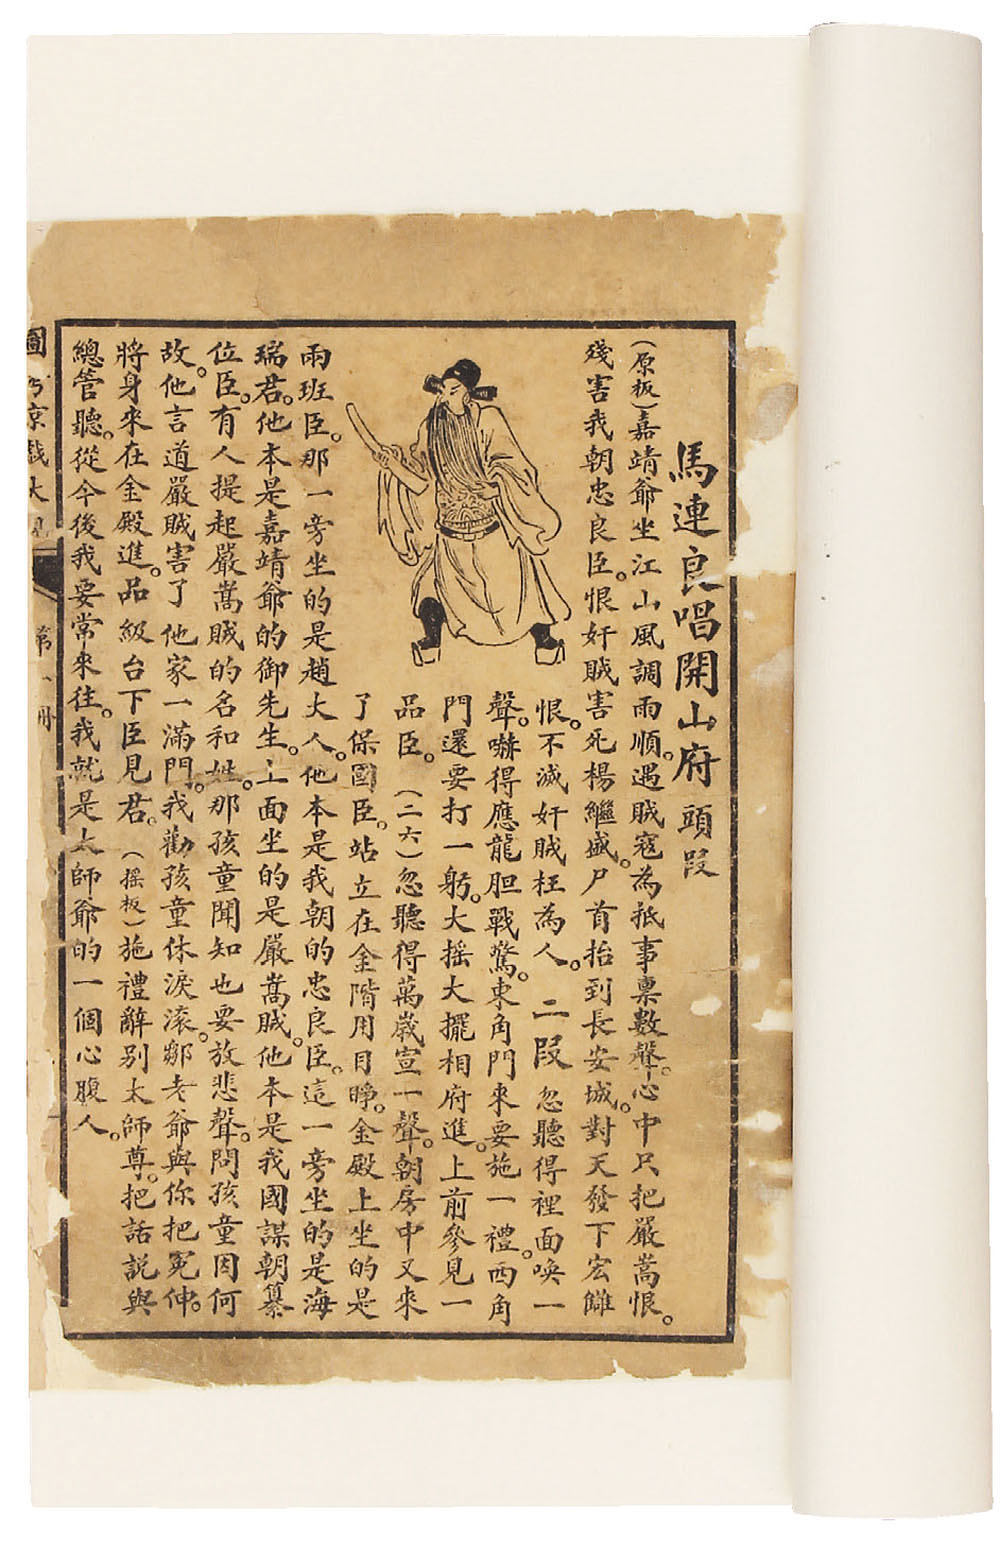 馬連良唱開山府 頭段
(原板)嘉靖爺坐江山風調雨順。遇賊寇為抵事禀數聲。心中只把嚴嵩恨。
殘害我朝忠良臣。恨奸賊害死楊繼盛。尸首抬到長安城。對天發下宏讎
恨。不滅奸賊枉為人。 二段 忽聽得裡面喚一
聲。嚇得應龍胆戰驚。東角門來要施一禮。西角
門還要打一躬。大摇大擺相府進。上前參見一
品臣。(二六)忽聽得萬歲宣一聲。朝房中又來
了保國臣。站立在金階用目睁。金殿上坐的是
兩班臣。那一旁坐的是趙大人。他本是我朝的忠良臣。這一旁坐的是海
瑞君。他本是嘉靖爺的御先生。上面坐的是嚴嵩賊。他本是我國謀朝纂
位臣。有人提起嚴嵩賊的名和姓。那孩童聞知也要放悲聲。問孩童因何
故。他言道嚴賊害了他家一滿門。我勸孩童休淚滚。鄒老爺與你把冤伸。
將身來在金殿進。品級台下臣見君。(摇板)施禮辭别太師尊。把話説與
總管聽。從今後我要常來往。我就是太師爺的一個心腹人。
圖 京戲大 第 冊